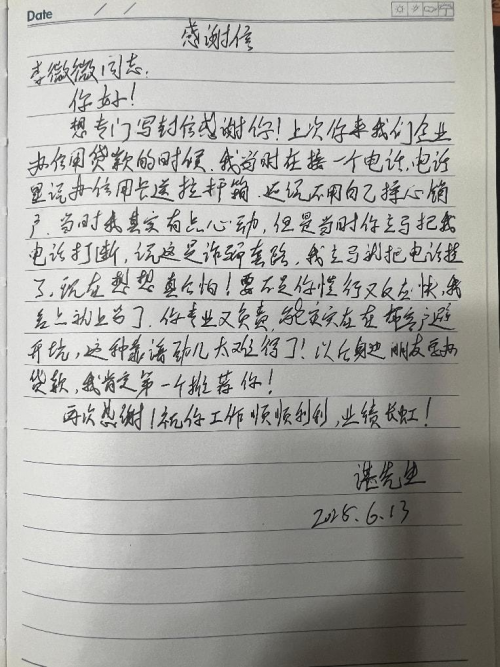 Date / /
感谢信
李微微同志:
你好!
想专门写封信感谢你!上次你来我们企业
办信用贷款的时候,我当时在接一个电话,电话
里说办信用卡送拉杆箱,还说不用自己操心销
户,当时我其实有点心动,但是当时你立马把我
电话打断,说这是诈骗套路,我立马就把电话挂
了,现在想想真后怕!要不是你懂行又反应快,我
马上就上当了,你专业又负责,能实实在在帮客户避
开坑,这种靠谱劲儿太难得了!以后身边朋友要办
贷款,我肯定第一个推荐你!
再次感谢!祝你工作顺顺利利,业绩长虹!
谌先生
2025.6.13